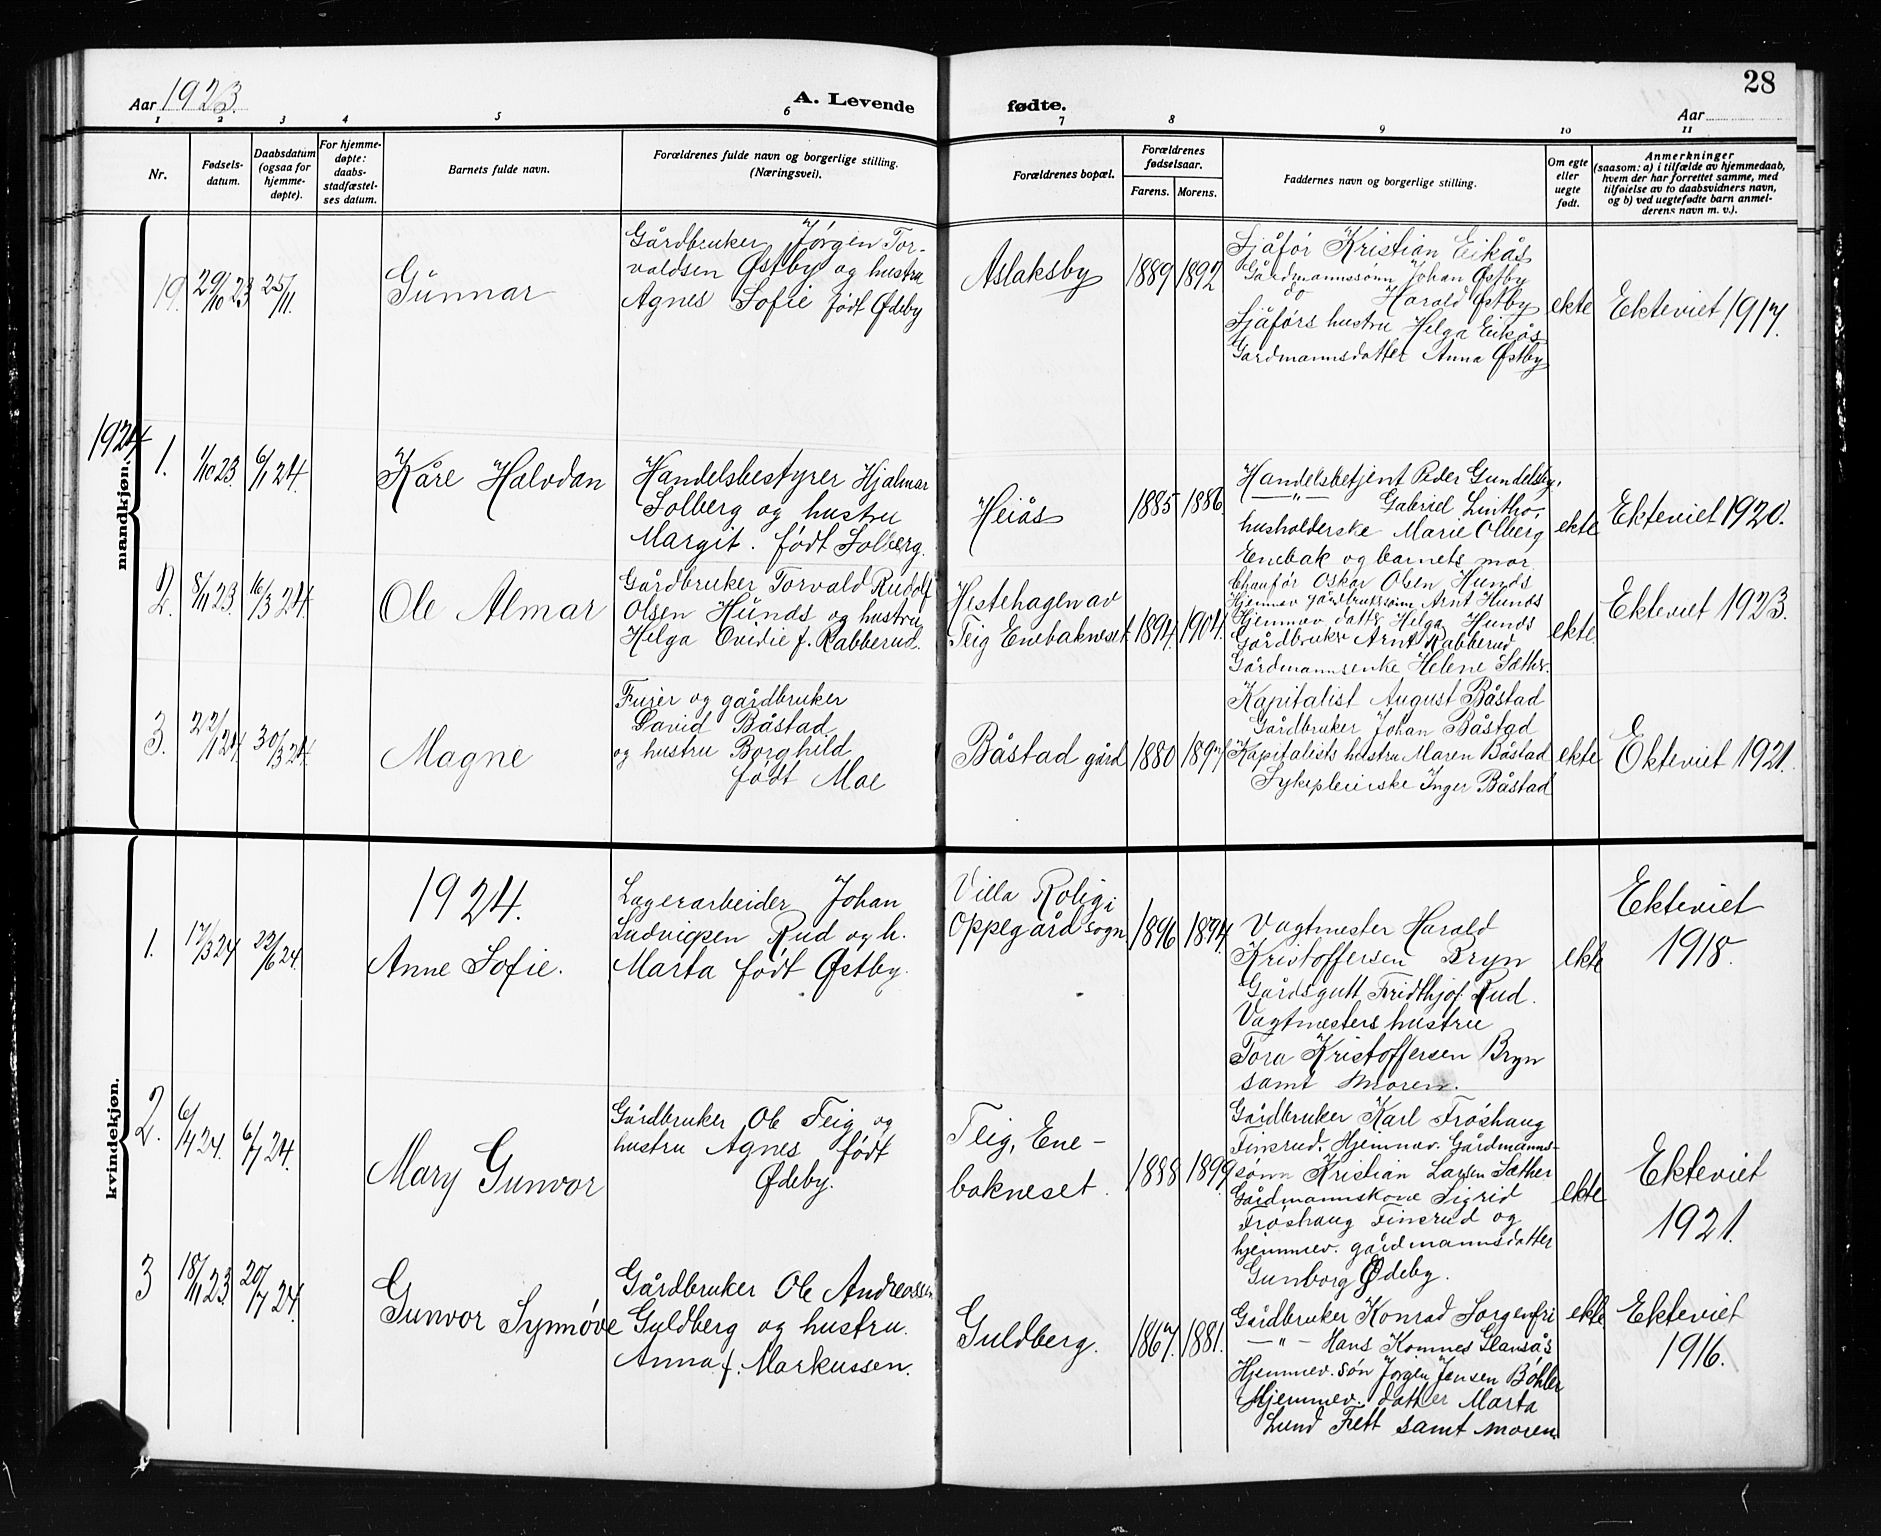 28
Aar 1923.
A. Levende fødte.
Aar
1 2 3 4 5 6 7 8 9 10 11
Nr.
Fødsels-
datum.
Daabsdatum
(ogsaa for
hjemme-
døpte).
For hjemme-
døpte:
daabs-
stadfæstel-
ses datum.
Barnets fulde navn.
Forældrenes fulde navn og borgerlige stilling.
(Næringsvei).
Forældrenes bopæl.
Forældrenes
fødselsaar.
Farens. Morens.
Faddernes navn og borgerlige stilling.
Om egte
eller
uegte
født.
Anmerkninger
(saasom: a) i tilfælde av hjemmedaab,
hvem der har forrettet samme, med
tilføielse av to daabsvidners navn,
og b) ved uegtefødte barn anmel-
derens navn m. v.).
mandkjøn.
19. 29/10 23 25/11.
Gunnar
Gårdbruker Jørgen Tor-
valdsen Østby og hustru
Agnes Sofie født Ødeby
Aslaksby
1889 1892
Sjåfør Kristian Eikås
Gårdmannssønn Johan Østby
do Harald Østby
Sjåførs hustru Helga Eikås
Gårdmannsdatter Anna Østby
ekte
Ekteviet 1917.
1924
1. 1/10 23. 6/1 24.
Kåre Halvdan
Handelsbestyrer Hjalmar
Solberg og hustru
Margit. født Solberg.
Heiås
1885 1886.
Handelsbetjent Peder Gundelsby.
—"— Gabriel Lintho,
husholderske Marie Olberg
Enebak og barnets mor
ekte
Ekteviet 1920.
2. 8/11 23. 16/3 24.
Ole Almar
Gårdbruker Torvald Rudolf
Olsen Hunds og hustru
Helga Ovidie f. Rabberud.
Hestehagen av
Teig Enebakneset.
1894. 1904.
Chaufør Oskar Olsen Hunds
Hjemmev gårdbrukssønn Arnt Hunds
Hjemmev datter Helga Hunds
Gårdbruker Arnt Rabberud
Gårdmannsenke Helene Sæther.
ekte.
Ekteviet 1923.
3. 22/1 24. 30/3 24.
Magne
Furer og gårdbruker
David Båstad
og hustru Borghild
født Moe
Båstad gård
1880 1897
Kapitalist August Båstad
Gårdbruker Johan Båstad
Kapitalists hustru Maren Båstad
Sykepleierske Inger Båstad
ekte
Ekteviet 1921.
kvindekjøn.
1924.
1. 17/3 24 22/6 24.
Anne Sofie.
Lagerarbeider Johan
Ludvigsen Rud og h.
Marta født Østby.
Villa Rolig i
Oppegård sogn
1896 1894
Vagtmester Harald
Kristoffersen Bryn
Gårdsgutt Fridthjof Rud.
Vagtmesters hustru
Tora Kristoffersen Bryn
samt moren.
ekte
Ekteviet
1918.
2. 6/4 24. 6/7 24.
Mary Gunvor
Gårdbruker Ole Teig og
hustru Agnes født
Ødeby.
Teig, Ene-
bakneset.
1888 1899
Gårdbruker Karl Frøshaug
Finsrud. Hjemmev. Gårdmanns-
sønn Kristian Larsen Sæther
Gårdmannskone Sigrid
Frøshaug Finsrud og
hjemmev. gårdmannsdatter
Gunborg Ødeby.
ekte
Ekteviet
1921.
3 18/11 23. 20/7 24.
Gunvor Synnøve
Gårdbruker Ole Andreassen
Guldberg og hustru.
Anna f. Markussen.
Guldberg.
1867. 1881.
Gårdbruker Konrad Sorgenfri
—"— Hans Glansås
Hjemmev. søn Jørgen Jensen Bøhler
Hjemmev. datter Marta
Lund Trett samt moren
ekte
Ekteviet
1916.